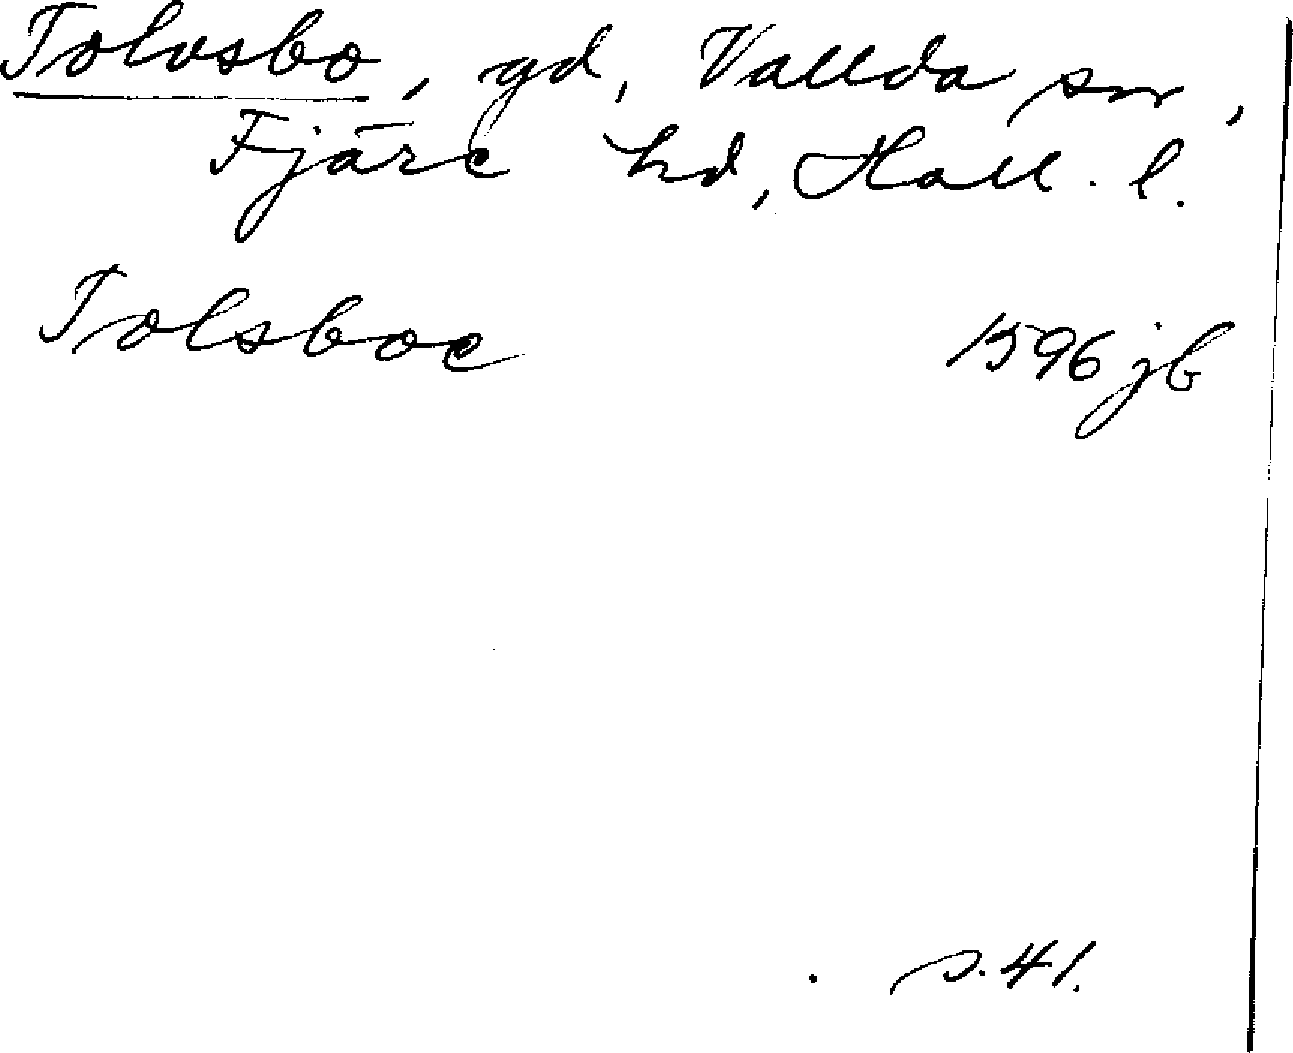 Tolvsbo, gd, Vallda sn,
Fjäre hd, Hall. l.
Tolsboe 1596 jb
s. 41.